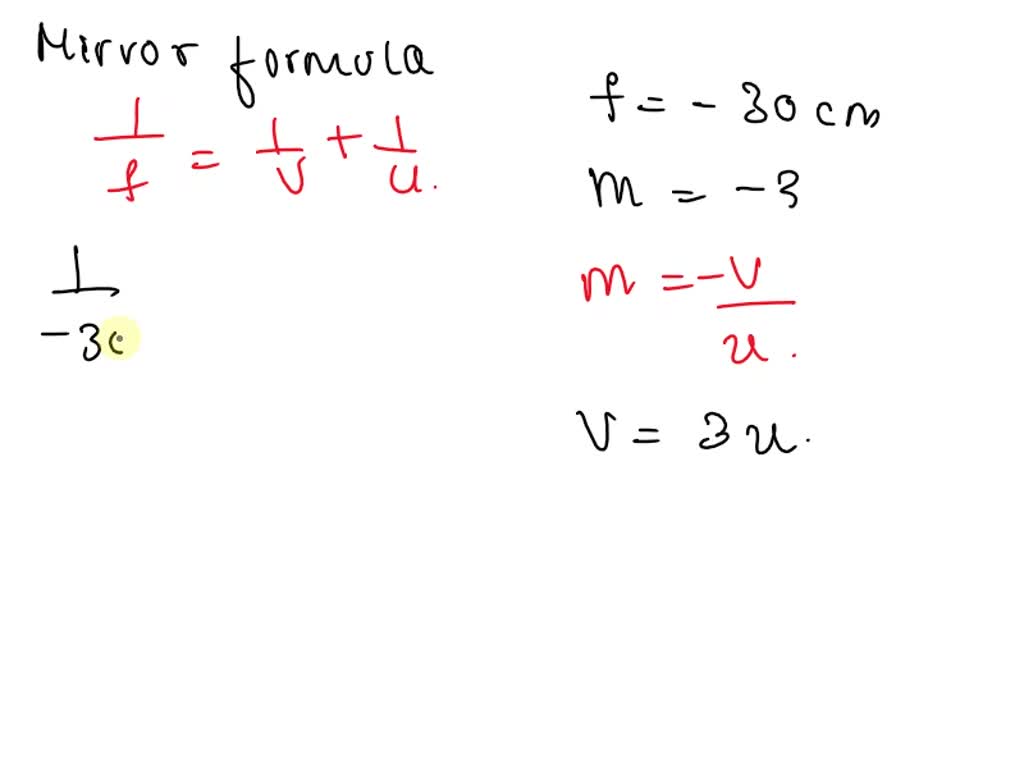 Mirror formula
1/f = 1/v + 1/u.
1/-30
f = - 30 cm
m = -3
m = -v/u.
v = 3u.